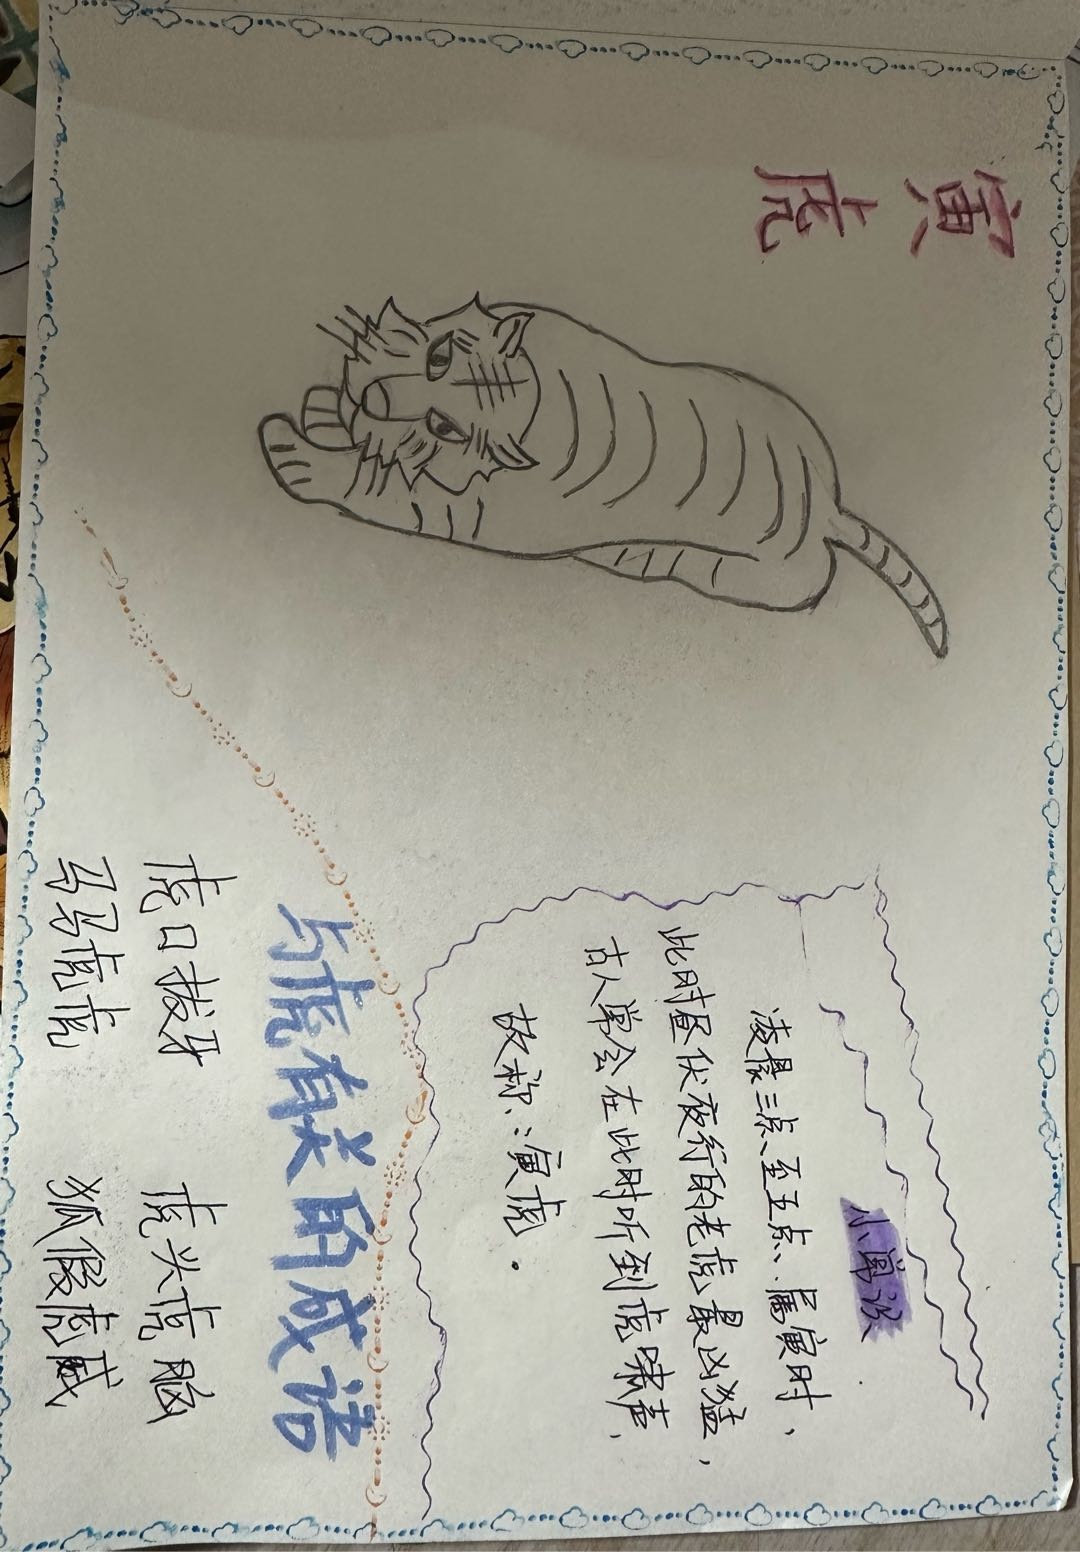 寅虎
小常识
凌晨三点至五点、属寅时，
此时昼伏夜行的老虎最凶猛，
古人常会在此时听到虎啸声，
故称：寅虎。
与虎有关的成语
虎口拔牙 虎头虎脑
马马虎虎 狐假虎威